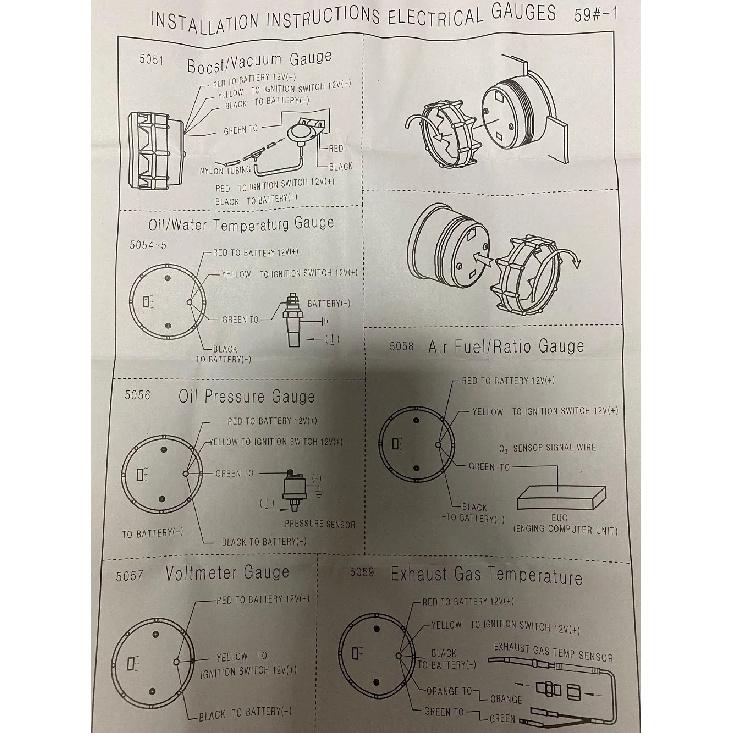 INSTALLATION INSTRUCTIONS ELECTRICAL GAUGES 59#-1
5051 Boost/Vacuum Gauge
RED TO BATTERY 12V(+)
YELLOW TO IGNITION SWITCH 12V(+)
BLACK TO BATTERY(-)
GREEN TO
RED
BLACK
NYLON TUBING
RED TO IGNITION SWITCH 12V(+)
BLACK TO BATTERY(-)
Oil/Water Temperaturg Gauge
5054-5
RED TO BATTERY 12V(+)
YELLOW TO IGNITION SWITCH 12V(+)
GREEN TO
BATTERY(-)
BLACK
TO BATTERY(-)
5056 Oil Pressure Gauge
RED TO BATTERY 12V(+)
YELLOW TO IGNITION SWITCH 12V(+)
GREEN TO
(-)
PRESSURE SENSOR
TO BATTERY(-)
BLACK TO BATTERY(-)
5057 Voltmeter Gauge
RED TO BATTERY 12V(+)
YELLOW TO
IGNITION SWITCH 12V(+)
BLACK TO BATTERY(-)
5058 Air Fuel/Ratio Gauge
RED TO BATTERY 12V(+)
YELLOW TO IGNITION SWITCH 12V(+)
O2 SENSOP SIGNAL WIRE
GREEN TO
BLACK
TO BATTERY(-)
EUC
(ENGING COMPUTER UNIT)
5059 Exhaust Gas Temperature
RED TO BATTERY 12V(+)
YELLOW TO IGNITION SWITCH 12V(+)
BLACK
TO BATTERY(-)
EXHAUST GAS TEMP SENSOR
ORANGE TO
ORANGE
GREEN TO
GREEN